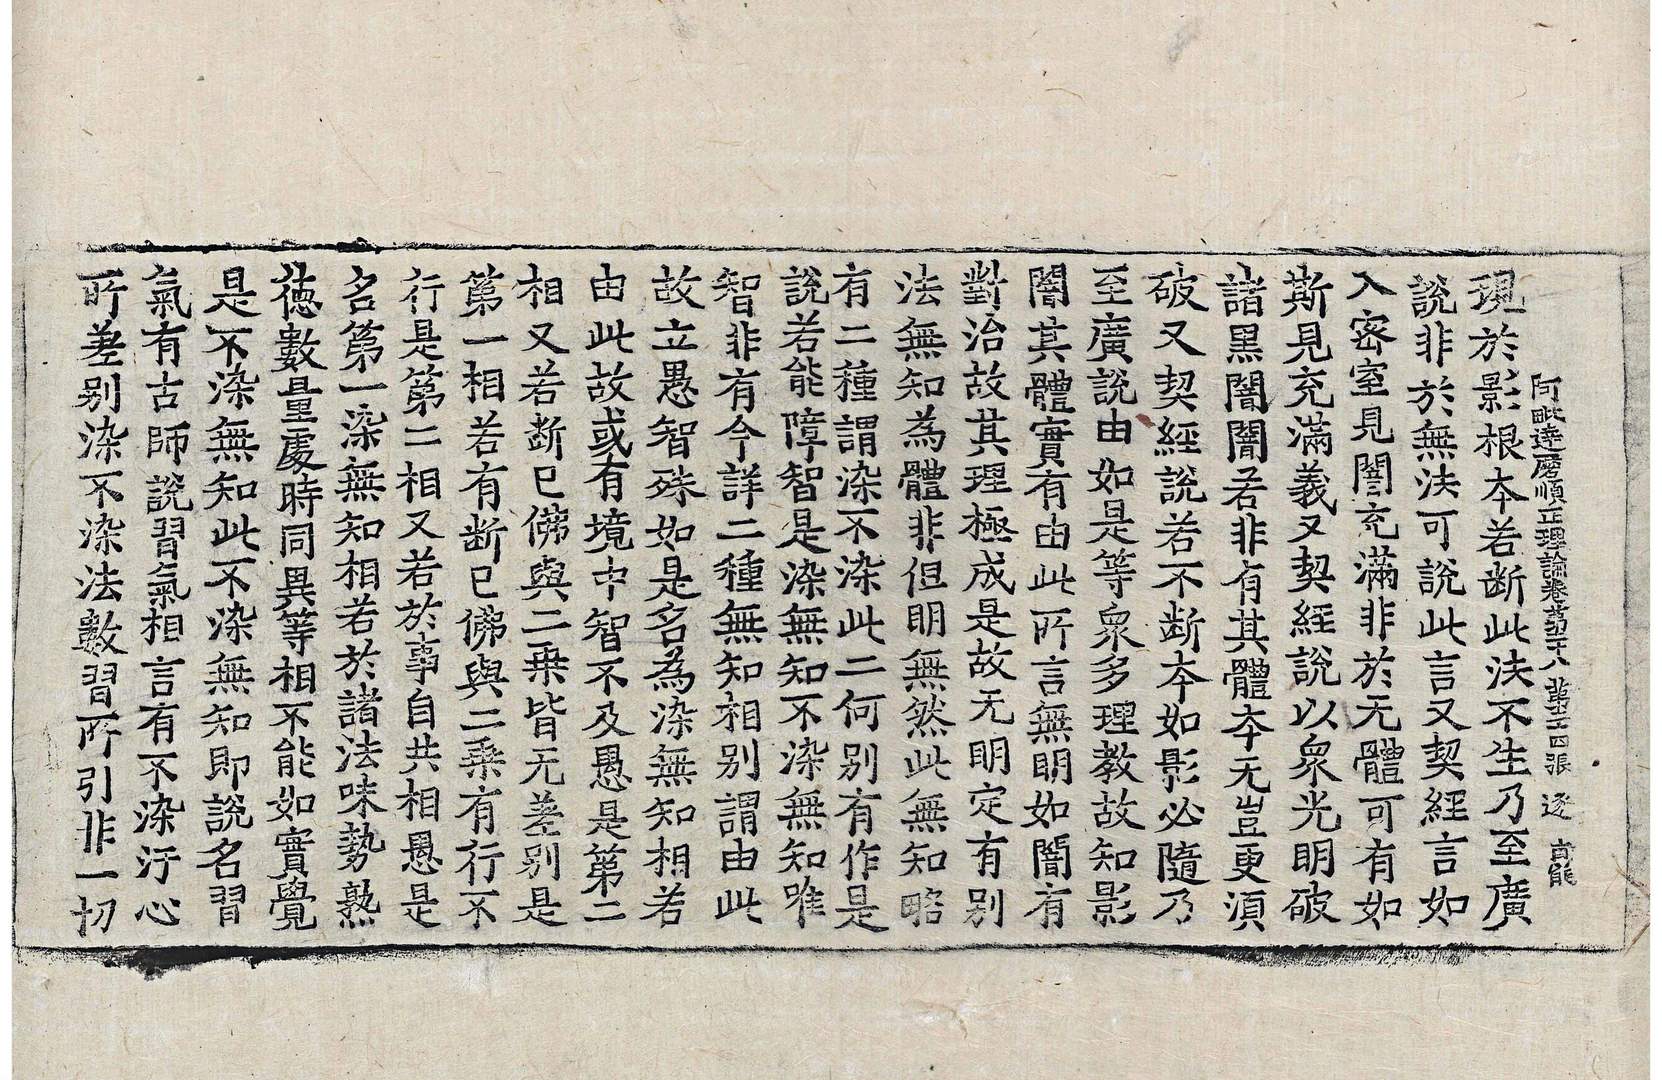 阿毗達磨順正理論卷第二十八　第十四張　逐
現於影根本若斷此法不生乃至廣
說非於無法可說此言又契經言如
入密室見闇充滿非於无體可有如
斯見充滿義又契經說以衆光明破
諸黑闇闇若非有其體本无豈更須
破又契經說若不斷本如影必隨乃
至廣說由如是等衆多理教故知影
闇其體實有由此所言無明如闇有
對治故其理極成是故无明定有別
法無知為體非但明無然此無知略
有二種謂染不染此二何別有作是
說若能障智是染無知不染無知唯
智非有今詳二種無知相別謂由此
故立愚智殊如是名為染無知相若
由此故或有境中智不及愚是第二
相又若斷已佛與二乗皆无差别是
第一相若有斷已佛與二乗有行不
行是第二相又若於事自共相愚是
名第一染無知相若於諸法味勢熟
德數量處時同異等相不能如實覺
是不染無知此不染無知即說名習
氣有古師說習氣相言有不染汙心
所差别染不染法數習所引非一切